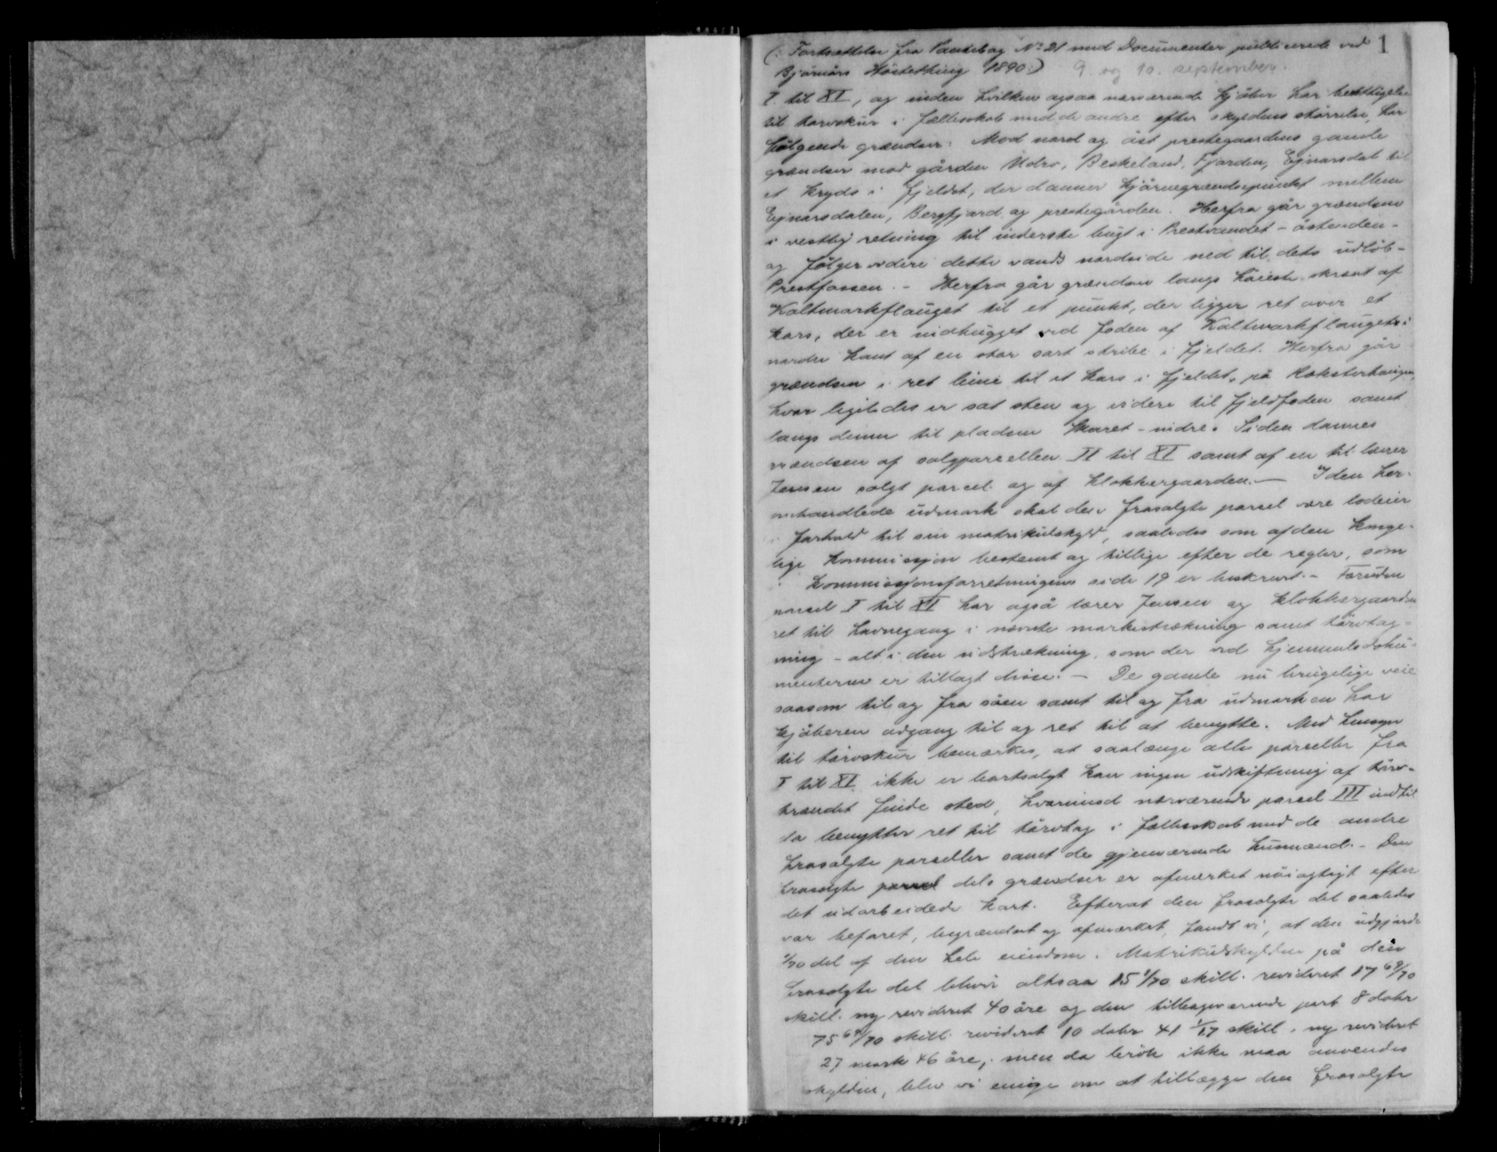 1
(: Fortsættelse fra Pantebog No 21 med Documenter publicerede ved
Bjarkøs Høstetthing 1890:) 9. og 10. september.
I til XI, og inden hvilken ogsaa nærværende kjøber har berettigelse
til torvskur i fællesskab med de andre efter skyldens størrelse, har
følgende grændser: Mod nord og øst prestegaardens gamle
grændser mod gården Ytdre, Beskeland, Fjorden, Ejnarsdal til
et kryds i fjeldet, der danner hjørnegrændsepunkt mellem
Ejnarsdalen, Bergfjord og prestegården. Herfra går grændsen
i vestlig retning til inderste bugt i Prestvandet - østenden -
og følger videre dette vands nordside ned til dets udløb -
Prestfossen. - Herfra går grændsen langs høieste skrent af
Kaltmarkflauget til et punkt, der ligger ret over et
kors, der er indhugget ved foden af Kaltmarkflaugets
nordre kant af en stor sort stribe i fjeldet. Herfra går
grændsen i ret linie til et kors i fjeldet, på
hvor ligeledes er sat sten og videre til fjeldfoden samt
langs denne til pladsen Skaret - nidre. Siden dannes
grændsen af salgparcellen II til XI samt af en til lærer
Jensen solgt parcel og af Klokkergaarden. — I den her-
omhandlede udmark skal den frasolgte parcel være lodeier
i forhold til sin matrikulskyld, saaledes som af den konge-
lige Kommissjon bestemt og tillige efter de regler, som
i Kommissjonsforretningens side 19 er beskrevet. - Foruden
parcel I til XI har også lærer Jensen og Klokkergaarden
ret til havnegang i nævnte markstrækning samt törvtag-
ning - alt i den udstrækning, som der ved hjemmelsdoku-
menterne er tillagt disse. - De gamle nu brugelige veie
saasom til og fra søen samt til og fra udmarken har
kjøberen adgang til og ret til at benytte. Med hensyn
til törvskur bemærkes, at saalænge alle parceller fra
I til XI ikke er bortsolgt kan ingen udskiftning af törv-
landet finde sted, hvorimod nærværende parcel III indtil
da benytter ret til törvtag i fællesskab med de andre
frasolgte parseller samt de gjenværende husmænd. - Den
frasolgte dels grændser er afmærket nöiagtigt efter
det udarbeidede kart. Efterat den frasolgte del saaledes
var befaret, begrændset og afmærket, fandt vi, at den udgjorde
1/70 del af den hele eiendom. Matrikulskylden på den
frasolgte del bliver altsaa 15 1/70 skill. revideret 17 69/70
skill. ny revideret 40 öre og den tilbageværende part 8 daler
75 69/70 skill. revideret 10 daler 41 1/17 skill. ny revideret
27 mark 46 öre, men da brök ikke maa anvendes
skylden, blev vi enige om at tillægge den frasolgte